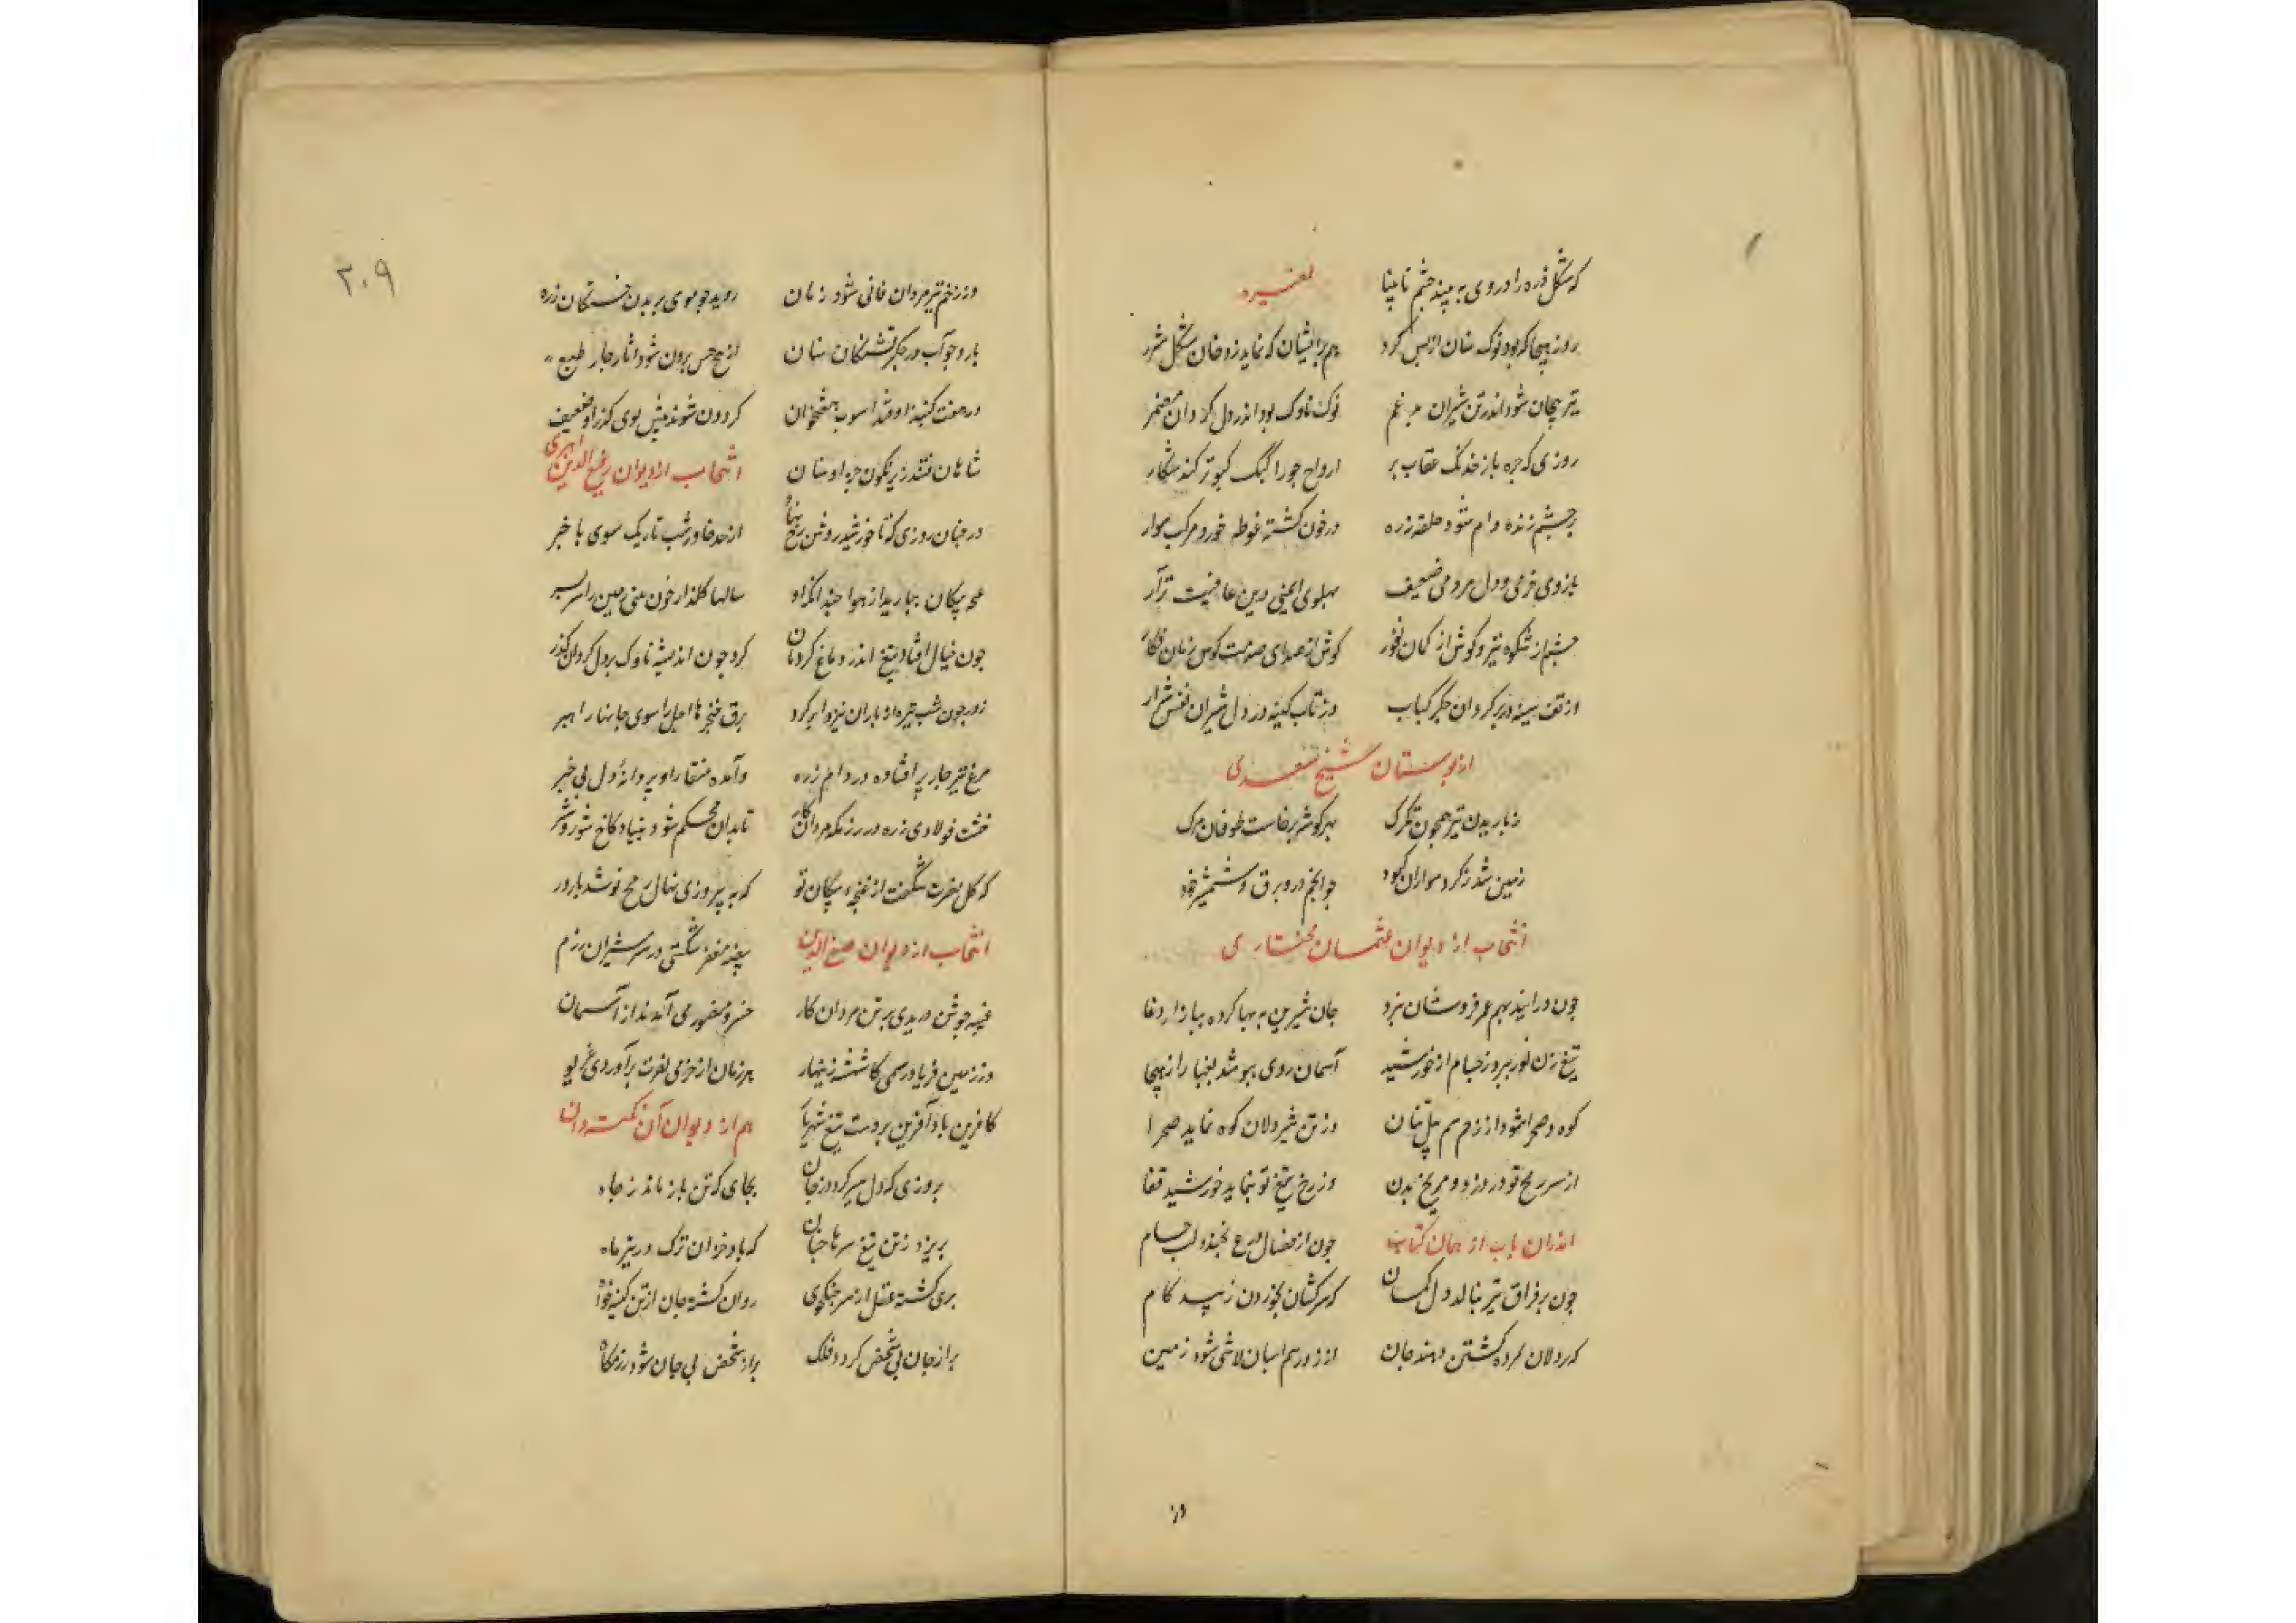 که شکل ذره را در روی به بیند چشم نابینا لغیره
روز هیجا که بود نوک سنان از بس کرد هم بر ایشان که نماید ز دخان شکل شرر
تیر پیچان شود اندر تن شیران نوک ناوک بود اندر دل گردان مضمر
روزی که جره باز خدنک عقاب پر ارواح جو را کبک کبوتر کند شکار
بر چشم زنده دام شود حلقه زره در خون کشته غوطه خورد مرکب سوار
بازوی خرمی و دل مردمی ضعیف پهلوی ایمنی و تن عافیت نزار
چشم از شکوه تیر و کوش از کمان نفور کوش از صدای صوت کوس زمان فکار
از تف سینه در بر کردان جکر کباب وز تاب کینه در دل شیران نفس شرار
از بوستان شیخ سعدی
ز باریدن تیر همچون تکرک بهر کوشه برخاست طوفان مرک
زمین شد ز کرد سواران کبود جو انجم درو برق شمشیر و خود
انتخاب از دیوان عثمان مختاری
چون درایند بهم عمر فروشان نبرد جان شیرین به بها کرده ببازار دغا
تیغ زن نور ببرد ز خیام از خورشید آسمان روی بپوشد بغبار از هیجا
کوه و صحرا شود از زخم سم پیل تنان وز تن شیردلان کوه نماید صحرا
از سر رمح تو در دزدد مریخ بدن وز رخ تیغ تو بنماید خورشید قفا
اندران باب از همان کتاب چون از خصال درع بخندد لب حسام
چون بر فراق تیر بنالد دل کمان که سرکشان بخوردن زنند کام
که پردلان کرده کشتن نهند جان از زور سم اسبان لاشی شود زمین
وز
۲۰۹
وز زخم تیر مردان فانی شود زمان روید جو موی بر بدن خستکان زره
بارد جو آب در جکر تشنکان سنان از هیچ حس برون شود اثار چار طبع
در هفت کنبد اوفتد اسوب هفتخوان کردون شود پیش بوی کز او ضعیف
شاهان فتند زیر نکون جره او سنان انتخاب از دیوان رفیع الدین ابهری
در جنان روزی که تا خورشید روشن رخ نماه از حد خاور شب تاریک سوی باختر
پیکان ببارید از هوا جندانک او سالها کلغذار خون زمین را سربسر
چون خیال افتاد تیغ اندر دماغ کردنان کرد چون اندیشه ناوک بر دل کردان کذر
روز چون شب تیره و باران تیر و ابر کرد برق خنجرها اجل را سوی جانها راهبر
مرغ تیر چار پر افتاده در دام زره وآمده منقار او پر دانه دل بی خبر
خشت فولادی زره در رزمکه مردان کار تا بدان محکم شود بنیاد کاخ شور و شر
که کل نصرت شکفت از غنچه پیکان تو که به پیروزی نهال رمح تو شد بارور
انتخاب از دیوان صفی الدین بیضه مغفر شکستی در سر شیران رزم
غیبه جوشن دریدی بر تن مردان کار خسرو منصور می آمد ندا از آسمان
وز زمین فریاد رسمی کاشته زینهار هر زمان از خرمی نصرت برآوردی غریو
کافرین باد آفرین بر دست تیغ شهریار هم از دیوان آن نکته دان
بروزی که دل سیر کردد ز جان بجای که تن باز ماند ز جاه
بریزد ز تن تیغ سرها جنان که باد خزان ترک در تیر ماه
بری کشته عقل از سر جنکجوی روان کشته جان از تن کینه خواه
پر از جان بی شخص کردد فلک پر از شخص بی جان شود رزمکاه